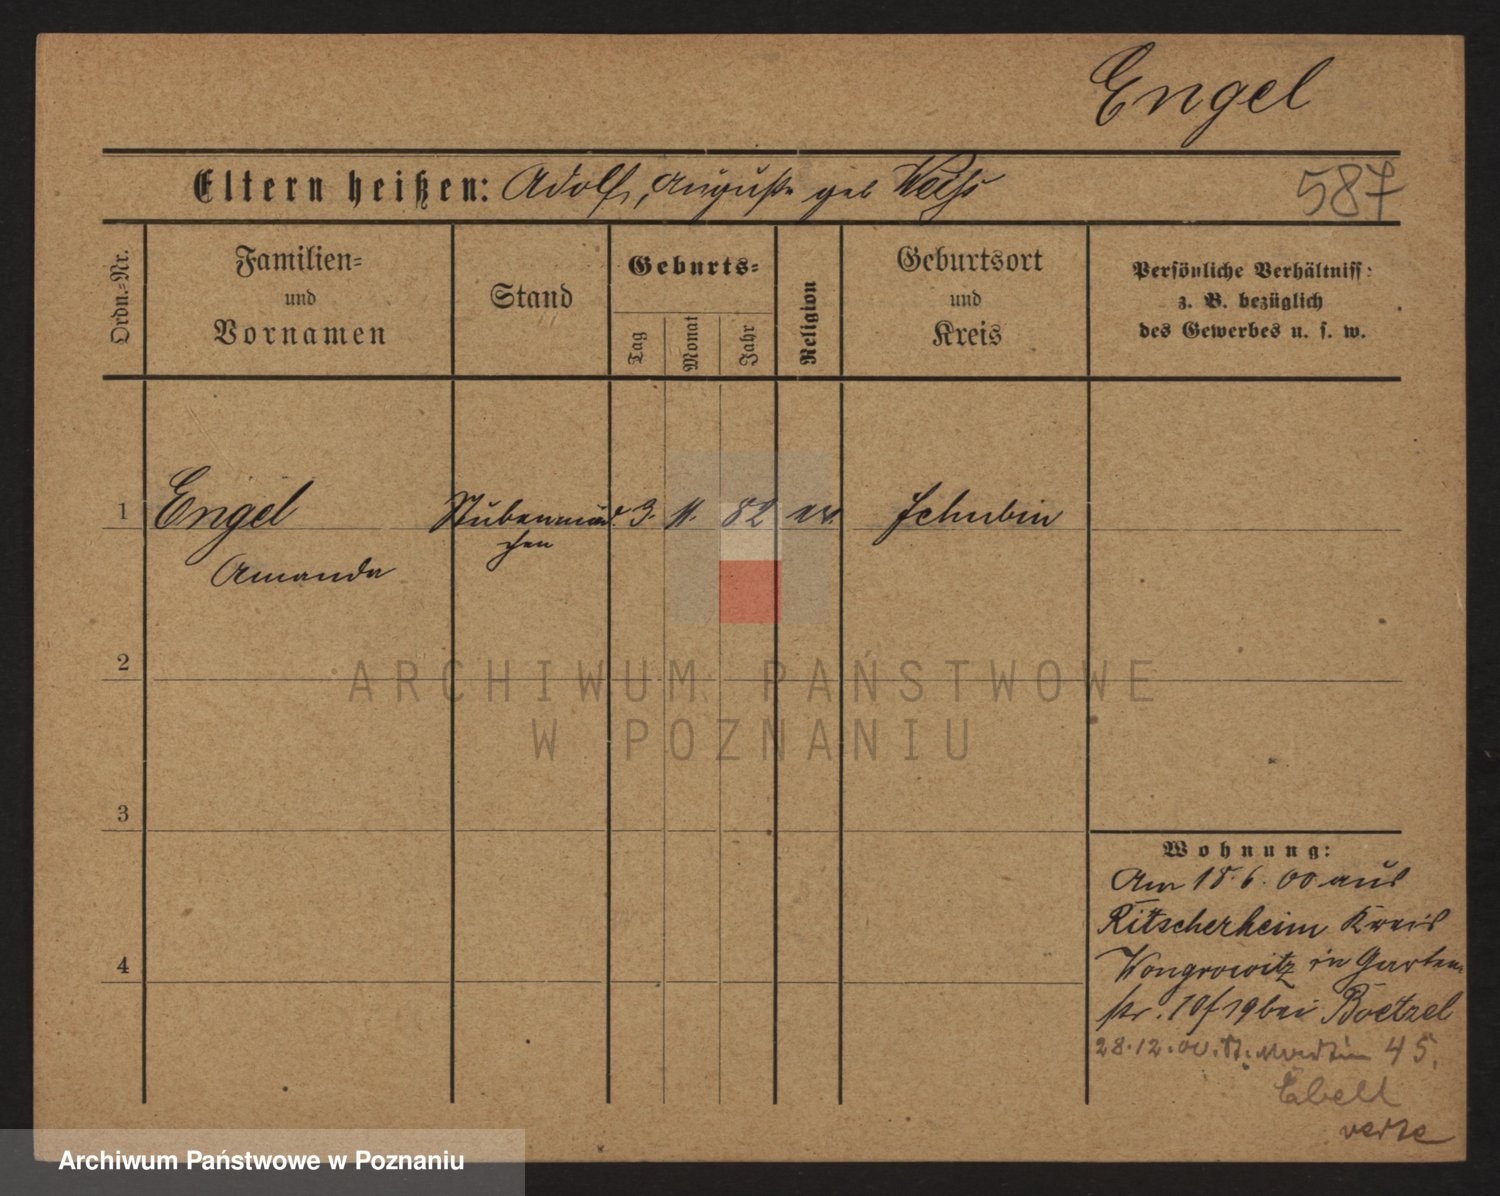 Engel
Eltern heißen: Adolf, Auguste geb Weiss
587
Ordn.-Nr.
Familien-
und
Vornamen
Stand
Geburts-
Tag
Monat
Jahr
Religion
Geburtsort
und
Kreis
Persönliche Verhältniss:
z. B. bezüglich
des Gewerbes u. s. w.
1 Engel Stubenmäd 3. 11. 82 ev. Schubin
chen
Amanda
2
3
4
Wohnung:
Am 18.6.00 aus
Ritscherheim Kreis
Wongrowitz in Garten
str. 18/19 bei Boetzel
28.12.00. St. Martin 45.
Ebelt
verte
ARCHIWUM PAŃSTWOWE
W POZNANIU
Archiwum Państwowe w Poznaniu